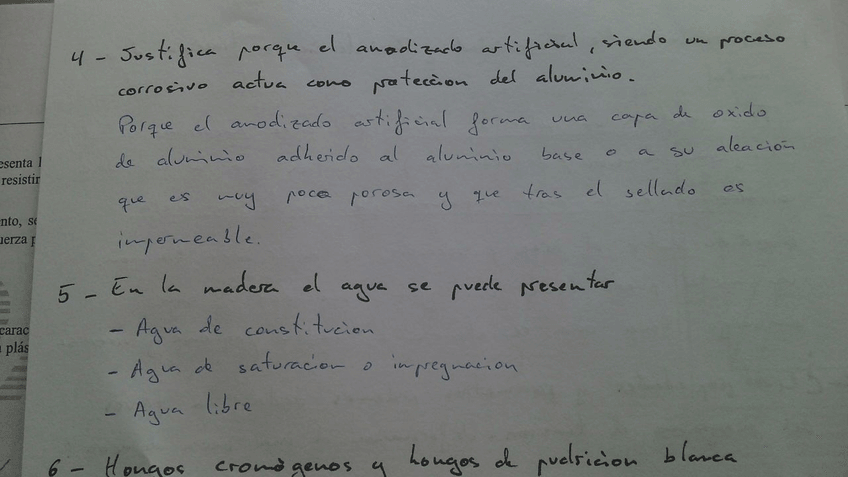 4 - Justifica porque el anodizado artificial, siendo un proceso
corrosivo actua como protección del aluminio.
Porque el anodizado artificial forma una capa de oxido
de aluminio adherido al aluminio base o a su aleación
que es muy poco porosa y que tras el sellado es
impermeable.
5 - En la madera el agua se puede presentar
- Agua de constitucion
- Agua de saturacion o impregnacion
- Agua libre
6 - Hongos cromógenos y hongos de pudricion blanca
esenta
resistir
nto, se
uerza p
carac
plás